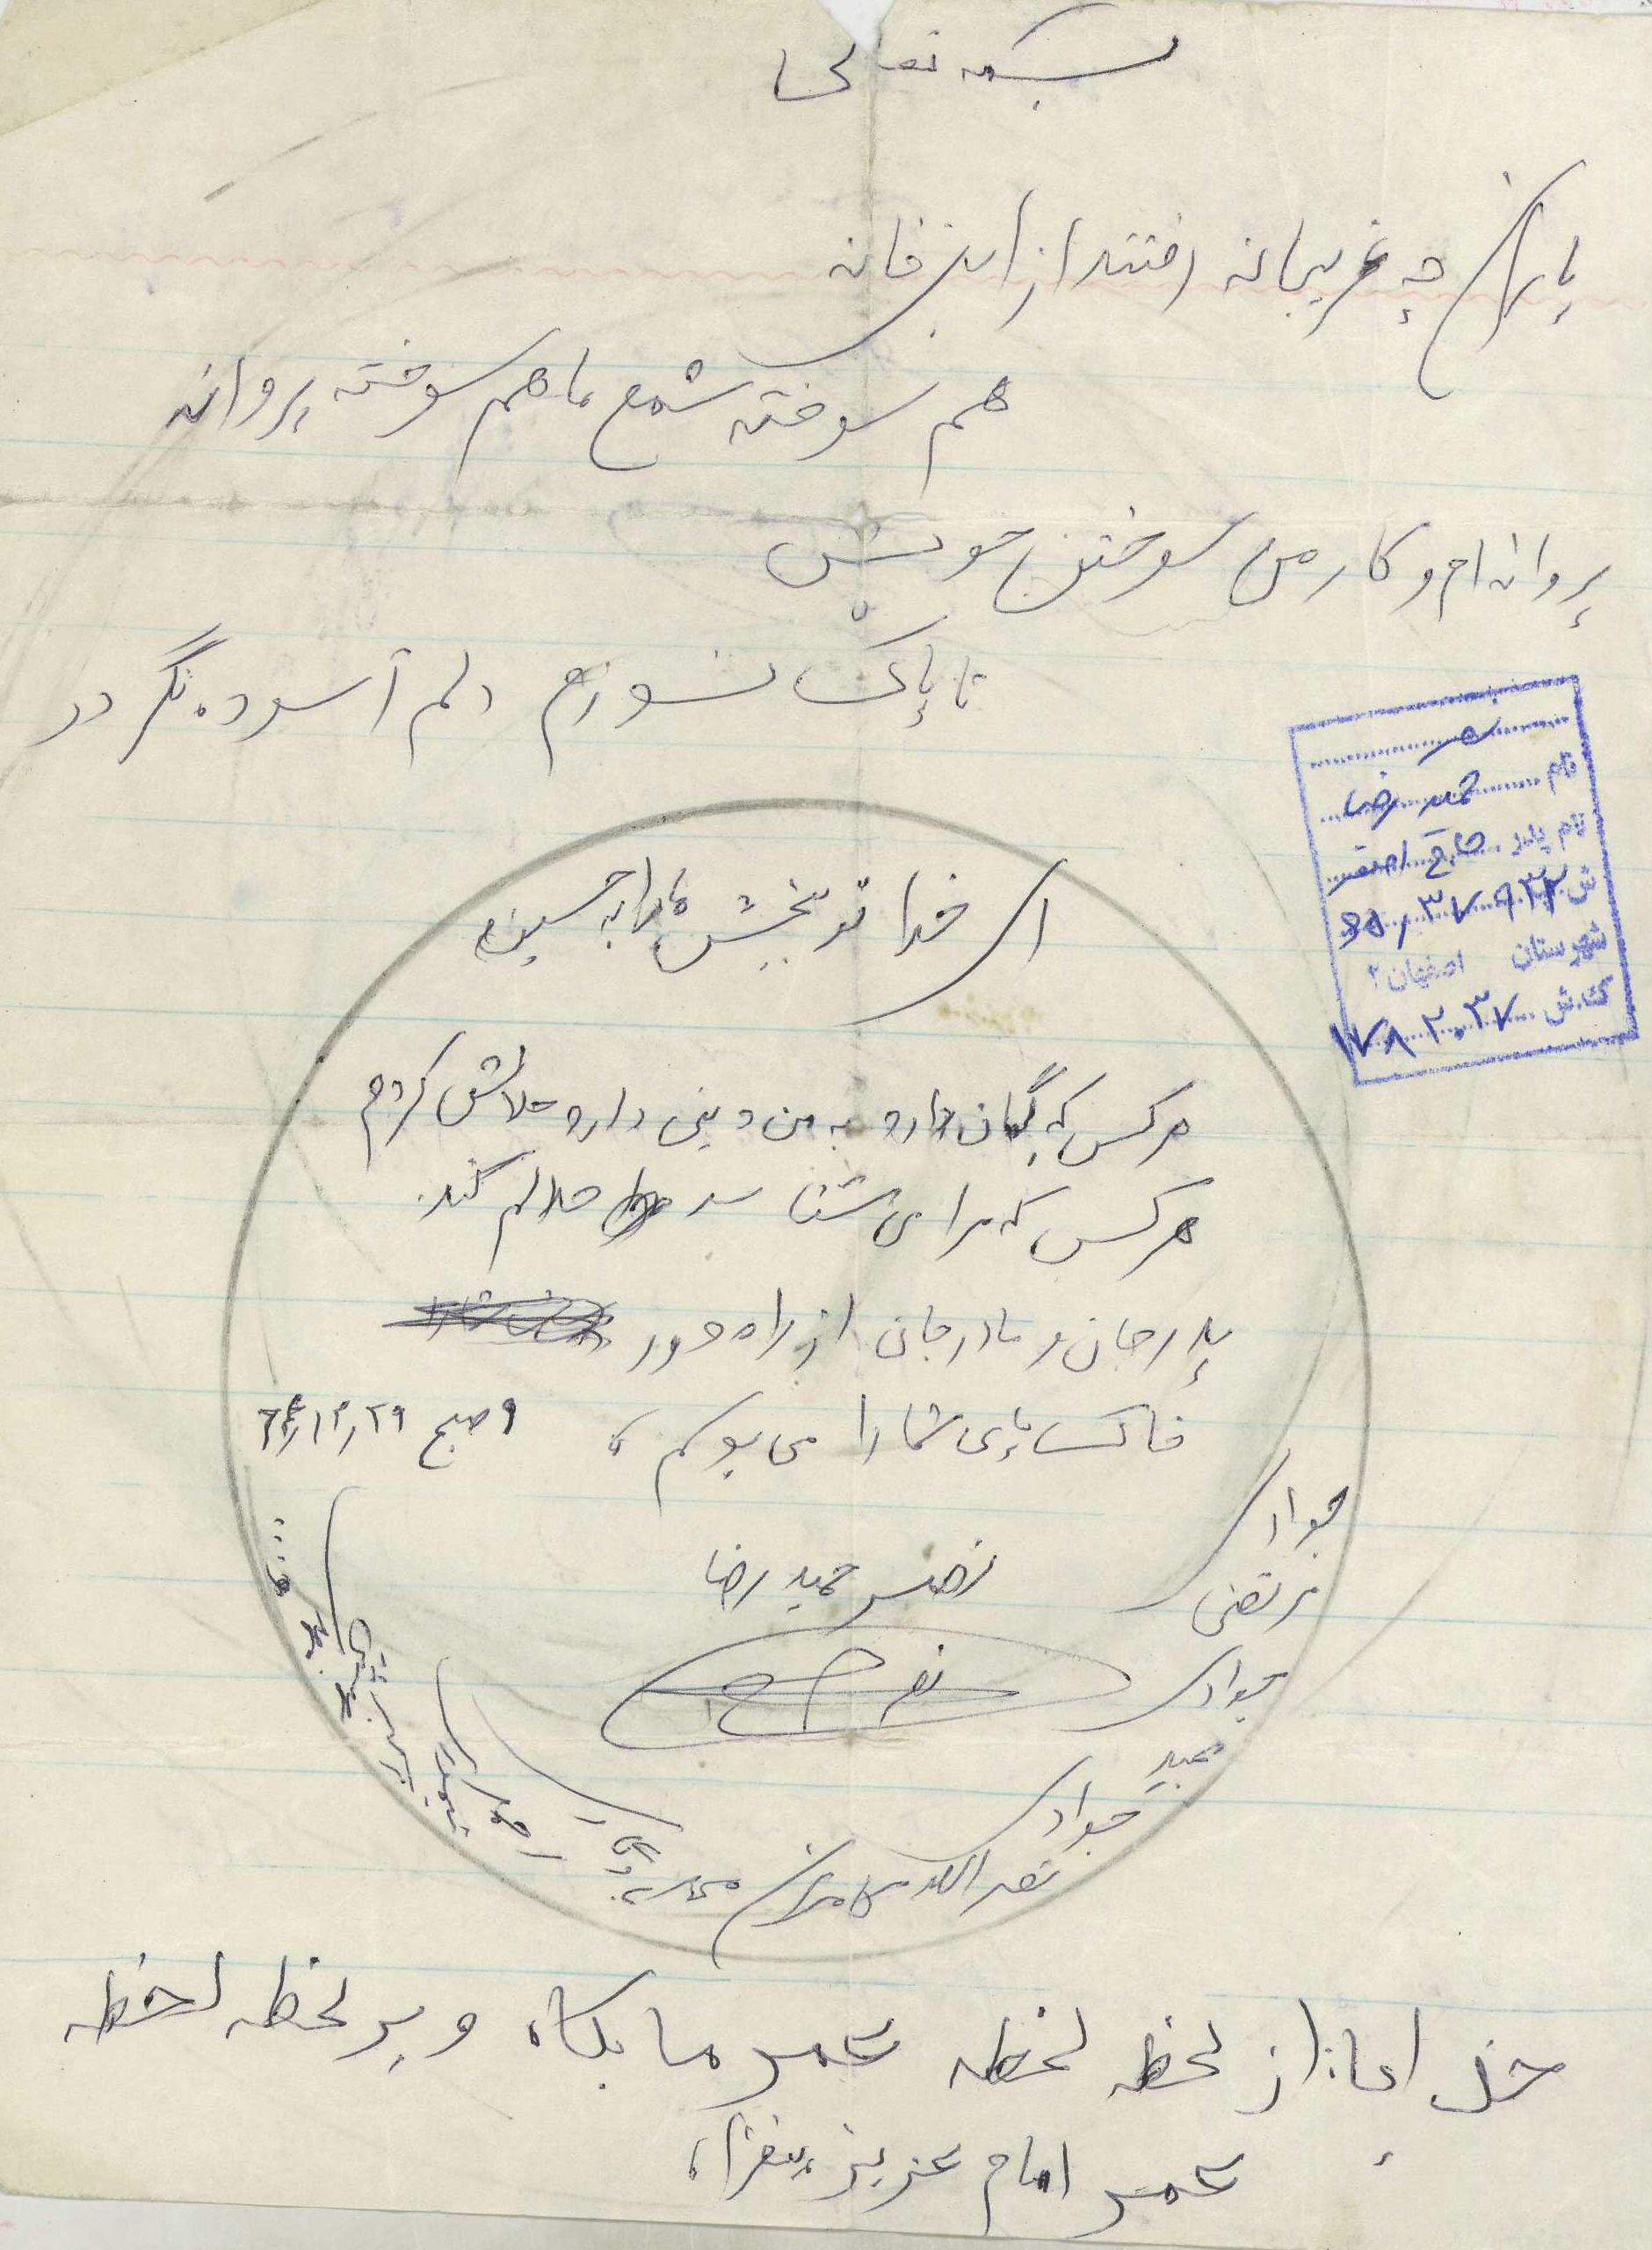 بسمه تعالی
یاران چه غریبانه رفتند از این خانه
هم سوخته شمع ما هم سوخته پروانه
پروانه ام و کار من سوختن خویش
تا پاک نسوزم دلم آسوده نگردد
نصر
نام حمید رضا
نام پدر حاج اصغر
ش
شهرستان اصفهان ۲
کد ش ۱۷۸۲۰۳۷
ای خدا تو ببخش ما را به حسین
هرکس که گمان دارد به من دینی دارد حلالش کردم
هرکس که مرا می شناسد حلالم کند
پدرجان و مادرجان از راه دور
خاک پای شما را می بوسم، ۹ صبح ۶۴/۱۲/۲۹
نصر حمید رضا
جوادی
مرتضی
جوادی
مجید
جوادی
نصرالله
خدایا از لحظه لحظه عمر ما بکاه و بر لحظه لحظه
عمر امام عزیز بیفزا،